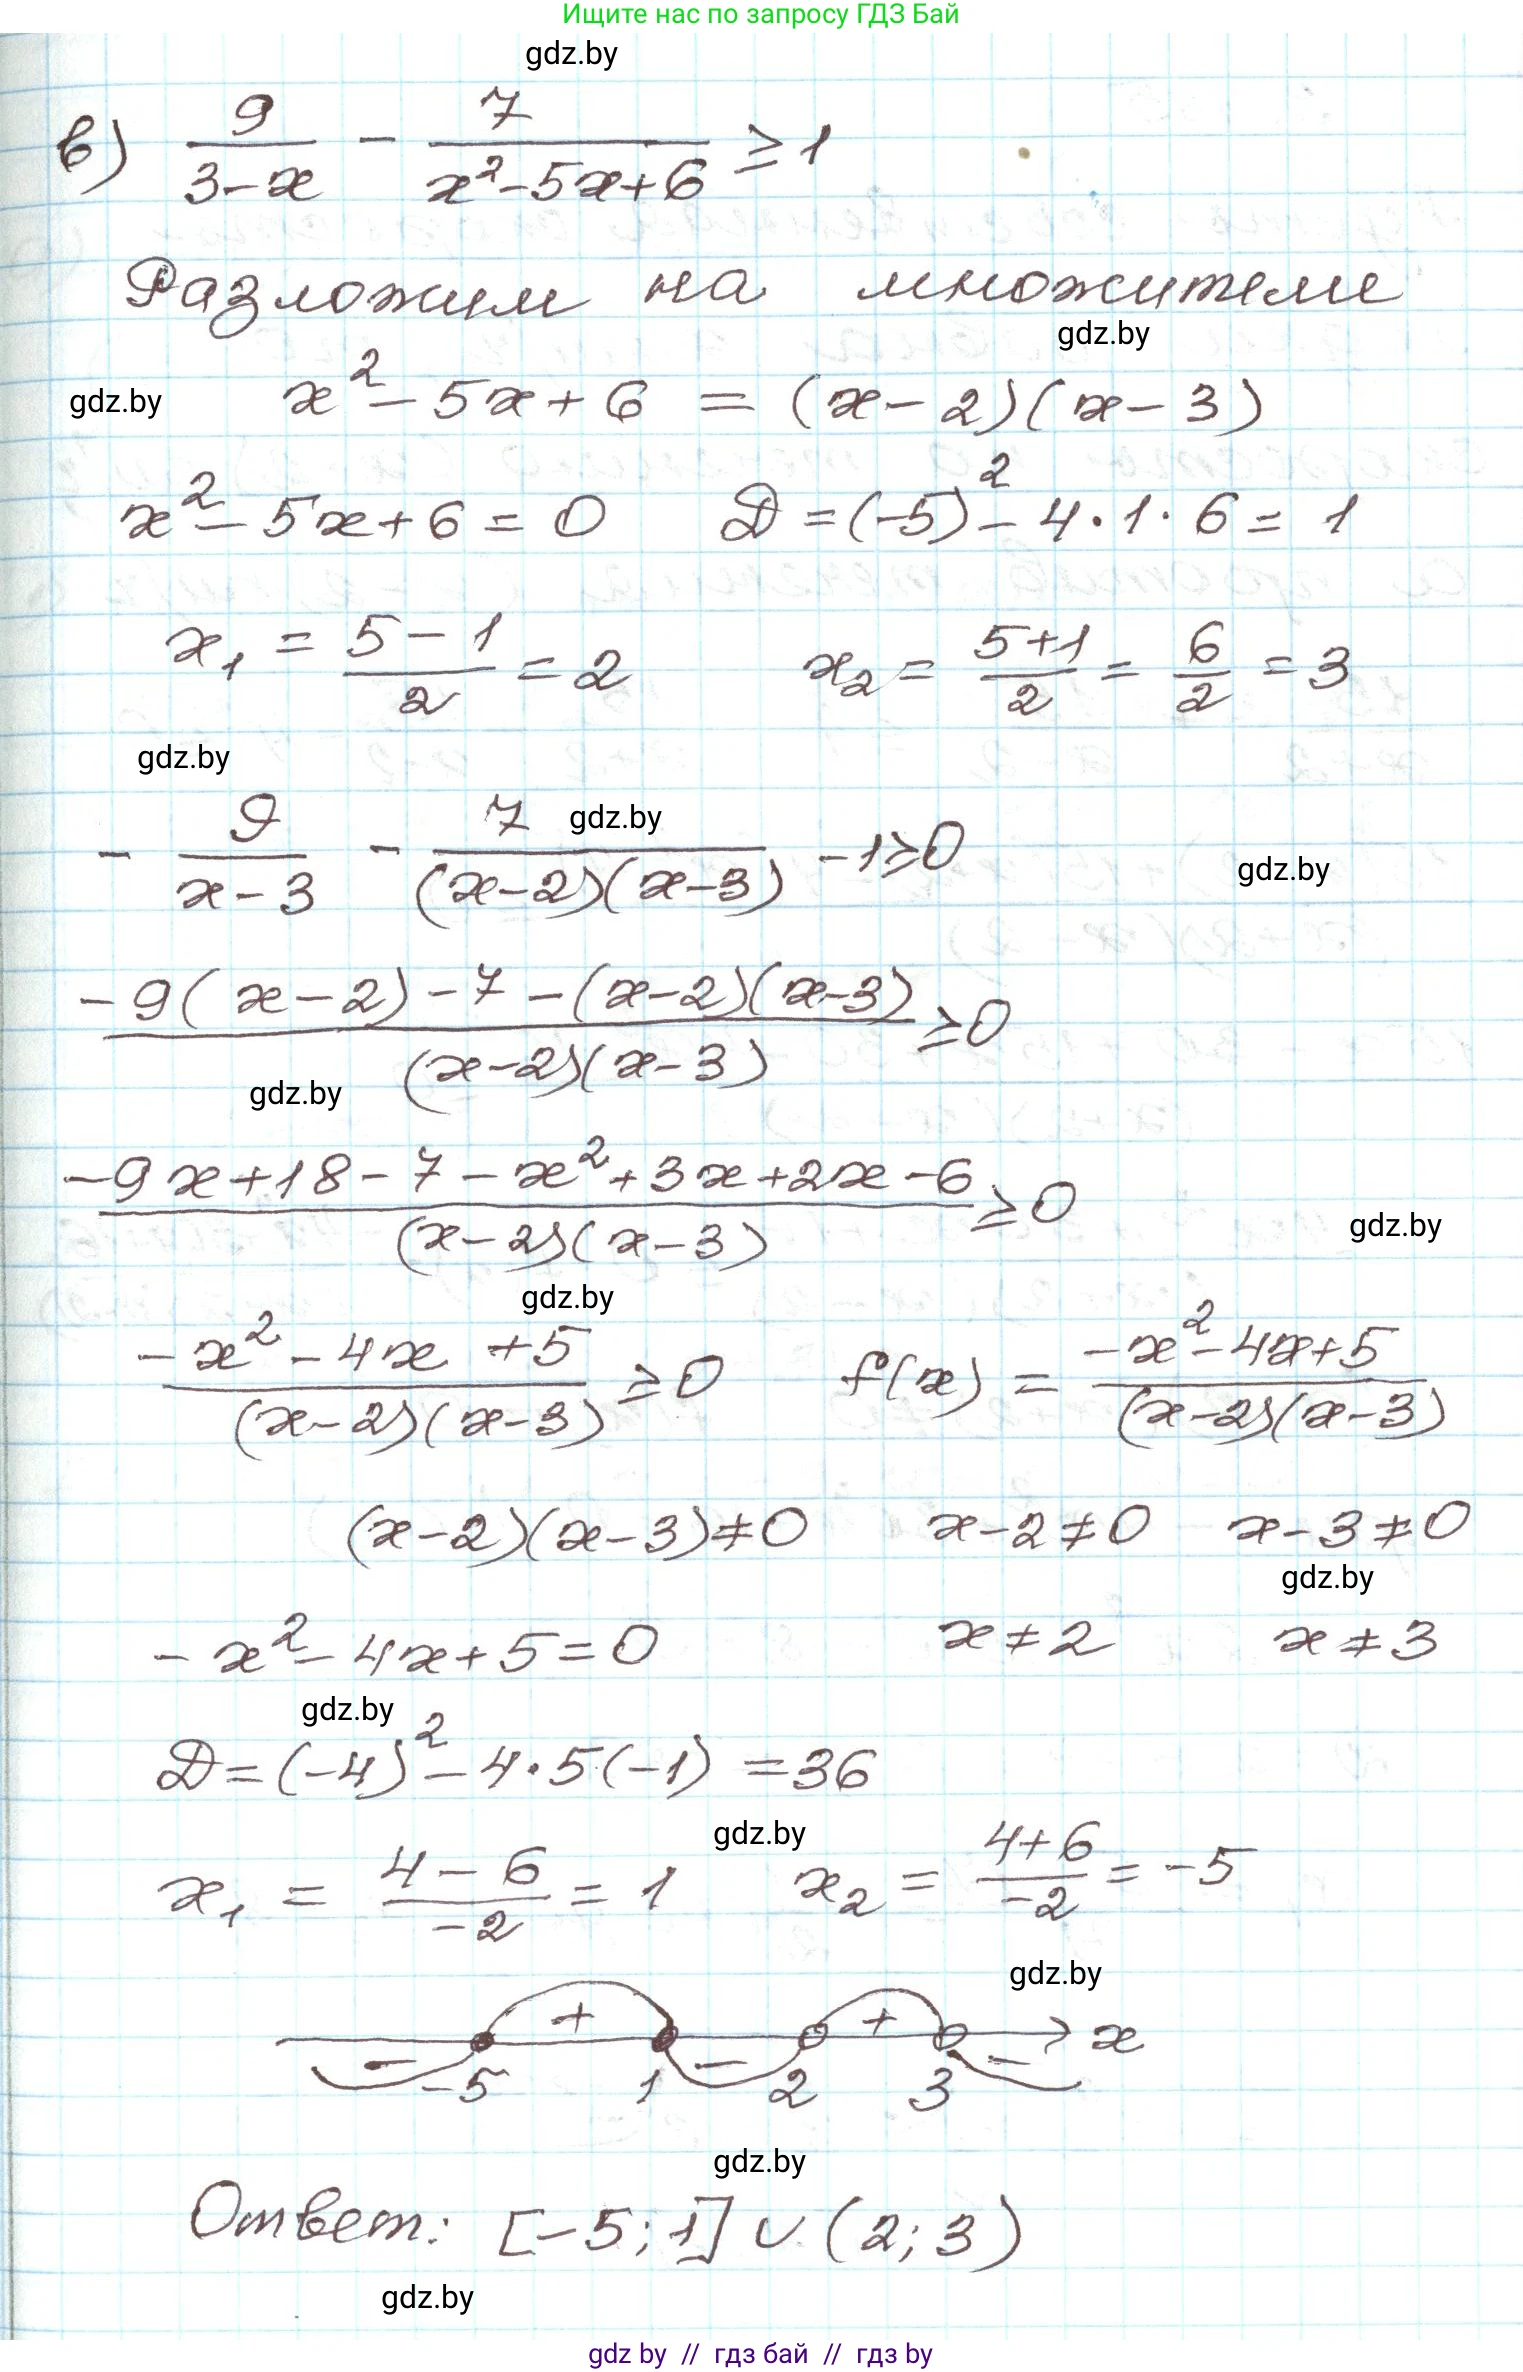 Ищите нас по запросу ГДЗ Бай
gdz.by
в) 9/(3-x) - 7/(x²-5x+6) ≥ 1
Разложим на множители
gdz.by
gdz.by
x² - 5x + 6 = (x-2)(x-3)
x² - 5x + 6 = 0 D = (-5)² - 4·1·6 = 1
x₁ = (5-1)/2 = 2 x₂ = (5+1)/2 = 6/2 = 3
gdz.by
gdz.by
- 9/(x-3) - 7/((x-2)(x-3)) - 1 ≥ 0
gdz.by
(-9(x-2) - 7 - (x-2)(x-3))/((x-2)(x-3)) ≥ 0
gdz.by
(-9x+18-7-x²+3x+2x-6)/((x-2)(x-3)) ≥ 0
gdz.by
gdz.by
(-x²-4x+5)/((x-2)(x-3)) ≥ 0 f(x) = (-x²-4x+5)/((x-2)(x-3))
(x-2)(x-3) ≠ 0 x-2 ≠ 0 x-3 ≠ 0
gdz.by
-x²-4x+5=0 x ≠ 2 x ≠ 3
gdz.by
D = (-4)² - 4·5(-1) = 36
gdz.by
x₁ = (4-6)/(-2) = 1 x₂ = (4+6)/(-2) = -5
gdz.by
- + - + - x
-5 1 2 3
gdz.by
Ответ: [-5; 1] ∪ (2; 3)
gdz.by
gdz by // гдз бай // гдз by